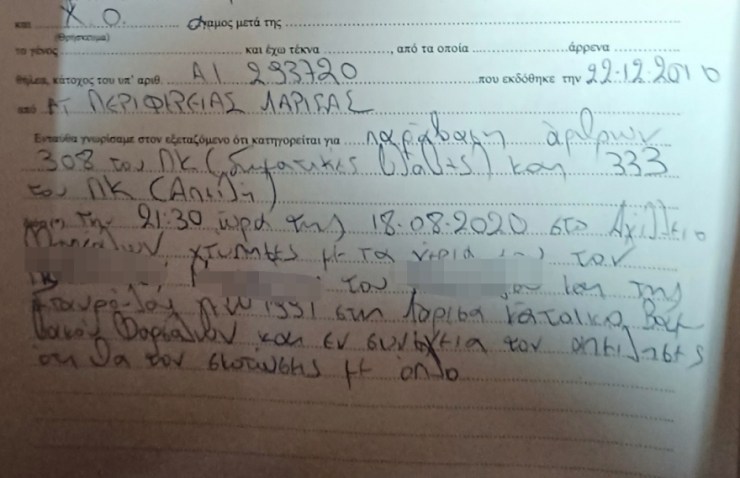 και Χ.Ο. άγαμος μετά της
(Θρήσκευμα)
το γένος και έχω τέκνα , από τα οποία άρρενα
θήλεα, κάτοχος του υπ' αριθ. ΑΙ 293720 που εκδόθηκε την 22.12.2010
από ΑΤ ΠΕΡΙΦΕΡΕΙΑΣ ΛΑΡΙΣΑΣ
Ενταύθα γνωρίσαμε στον εξεταζόμενο ότι κατηγορείται για παράβαση άρθρων
308 του ΠΚ (Σωματικές βλάβες) και 333
του ΠΚ (Απειλή)
την 21:30 ώρα της 18.08.2020 στο Αχίλλειο
χτύπησες με τα χέρια του τον
του και της
1991 στη Λάρισα κάτοικο
Φαρσάλων και εν συνεχεία τον απείλησες
ότι θα τον σκοτώσης με όπλο